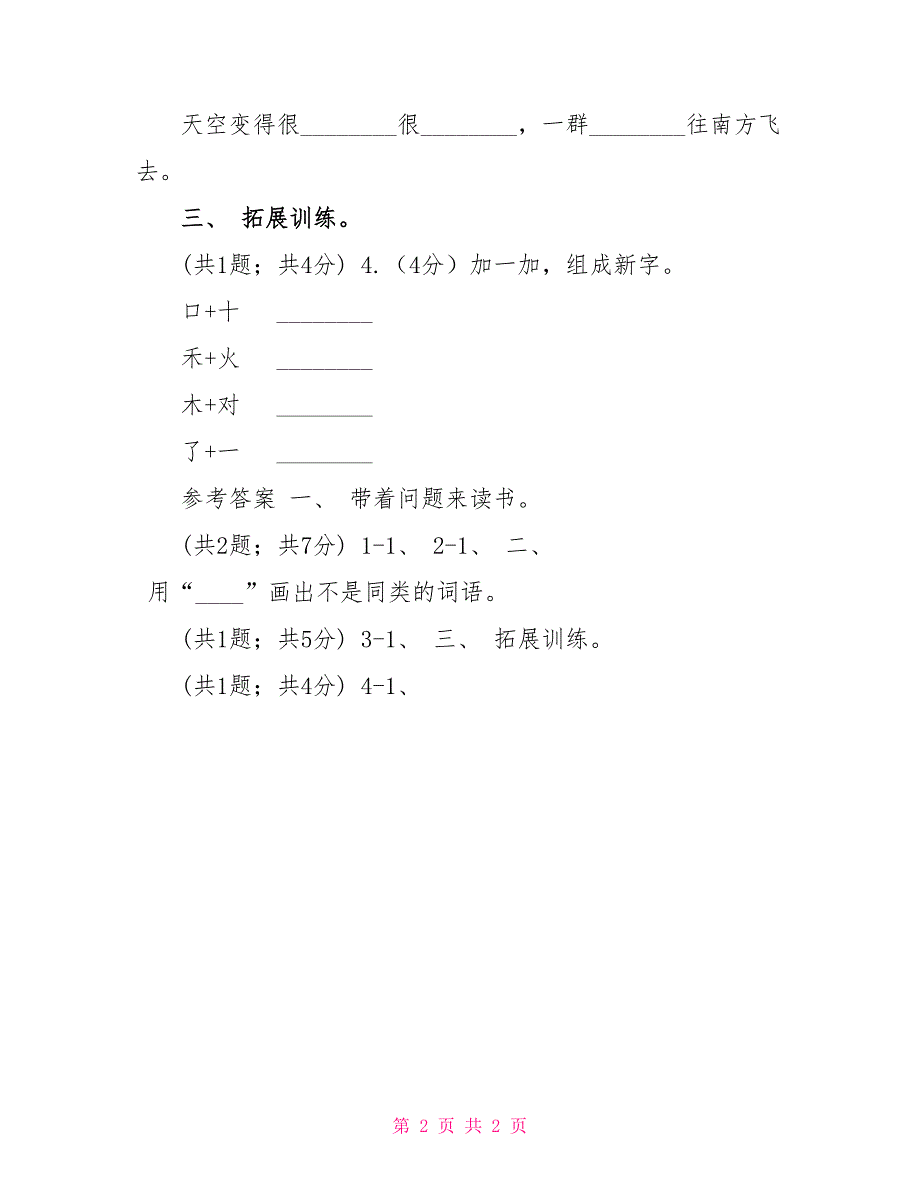 天空变得很________很________，一群________往南方飞
去。
三、 拓展训练。
(共1题；共4分) 4.（4分）加一加，组成新字。
口+十 ________
禾+火 ________
木+对 ________
了+一 ________
参考答案 一、 带着问题来读书。
(共2题；共7分) 1-1、 2-1、 二、
用“____”画出不是同类的词语。
(共1题；共5分) 3-1、 三、 拓展训练。
(共1题；共4分) 4-1、
第 2 页 共 2 页